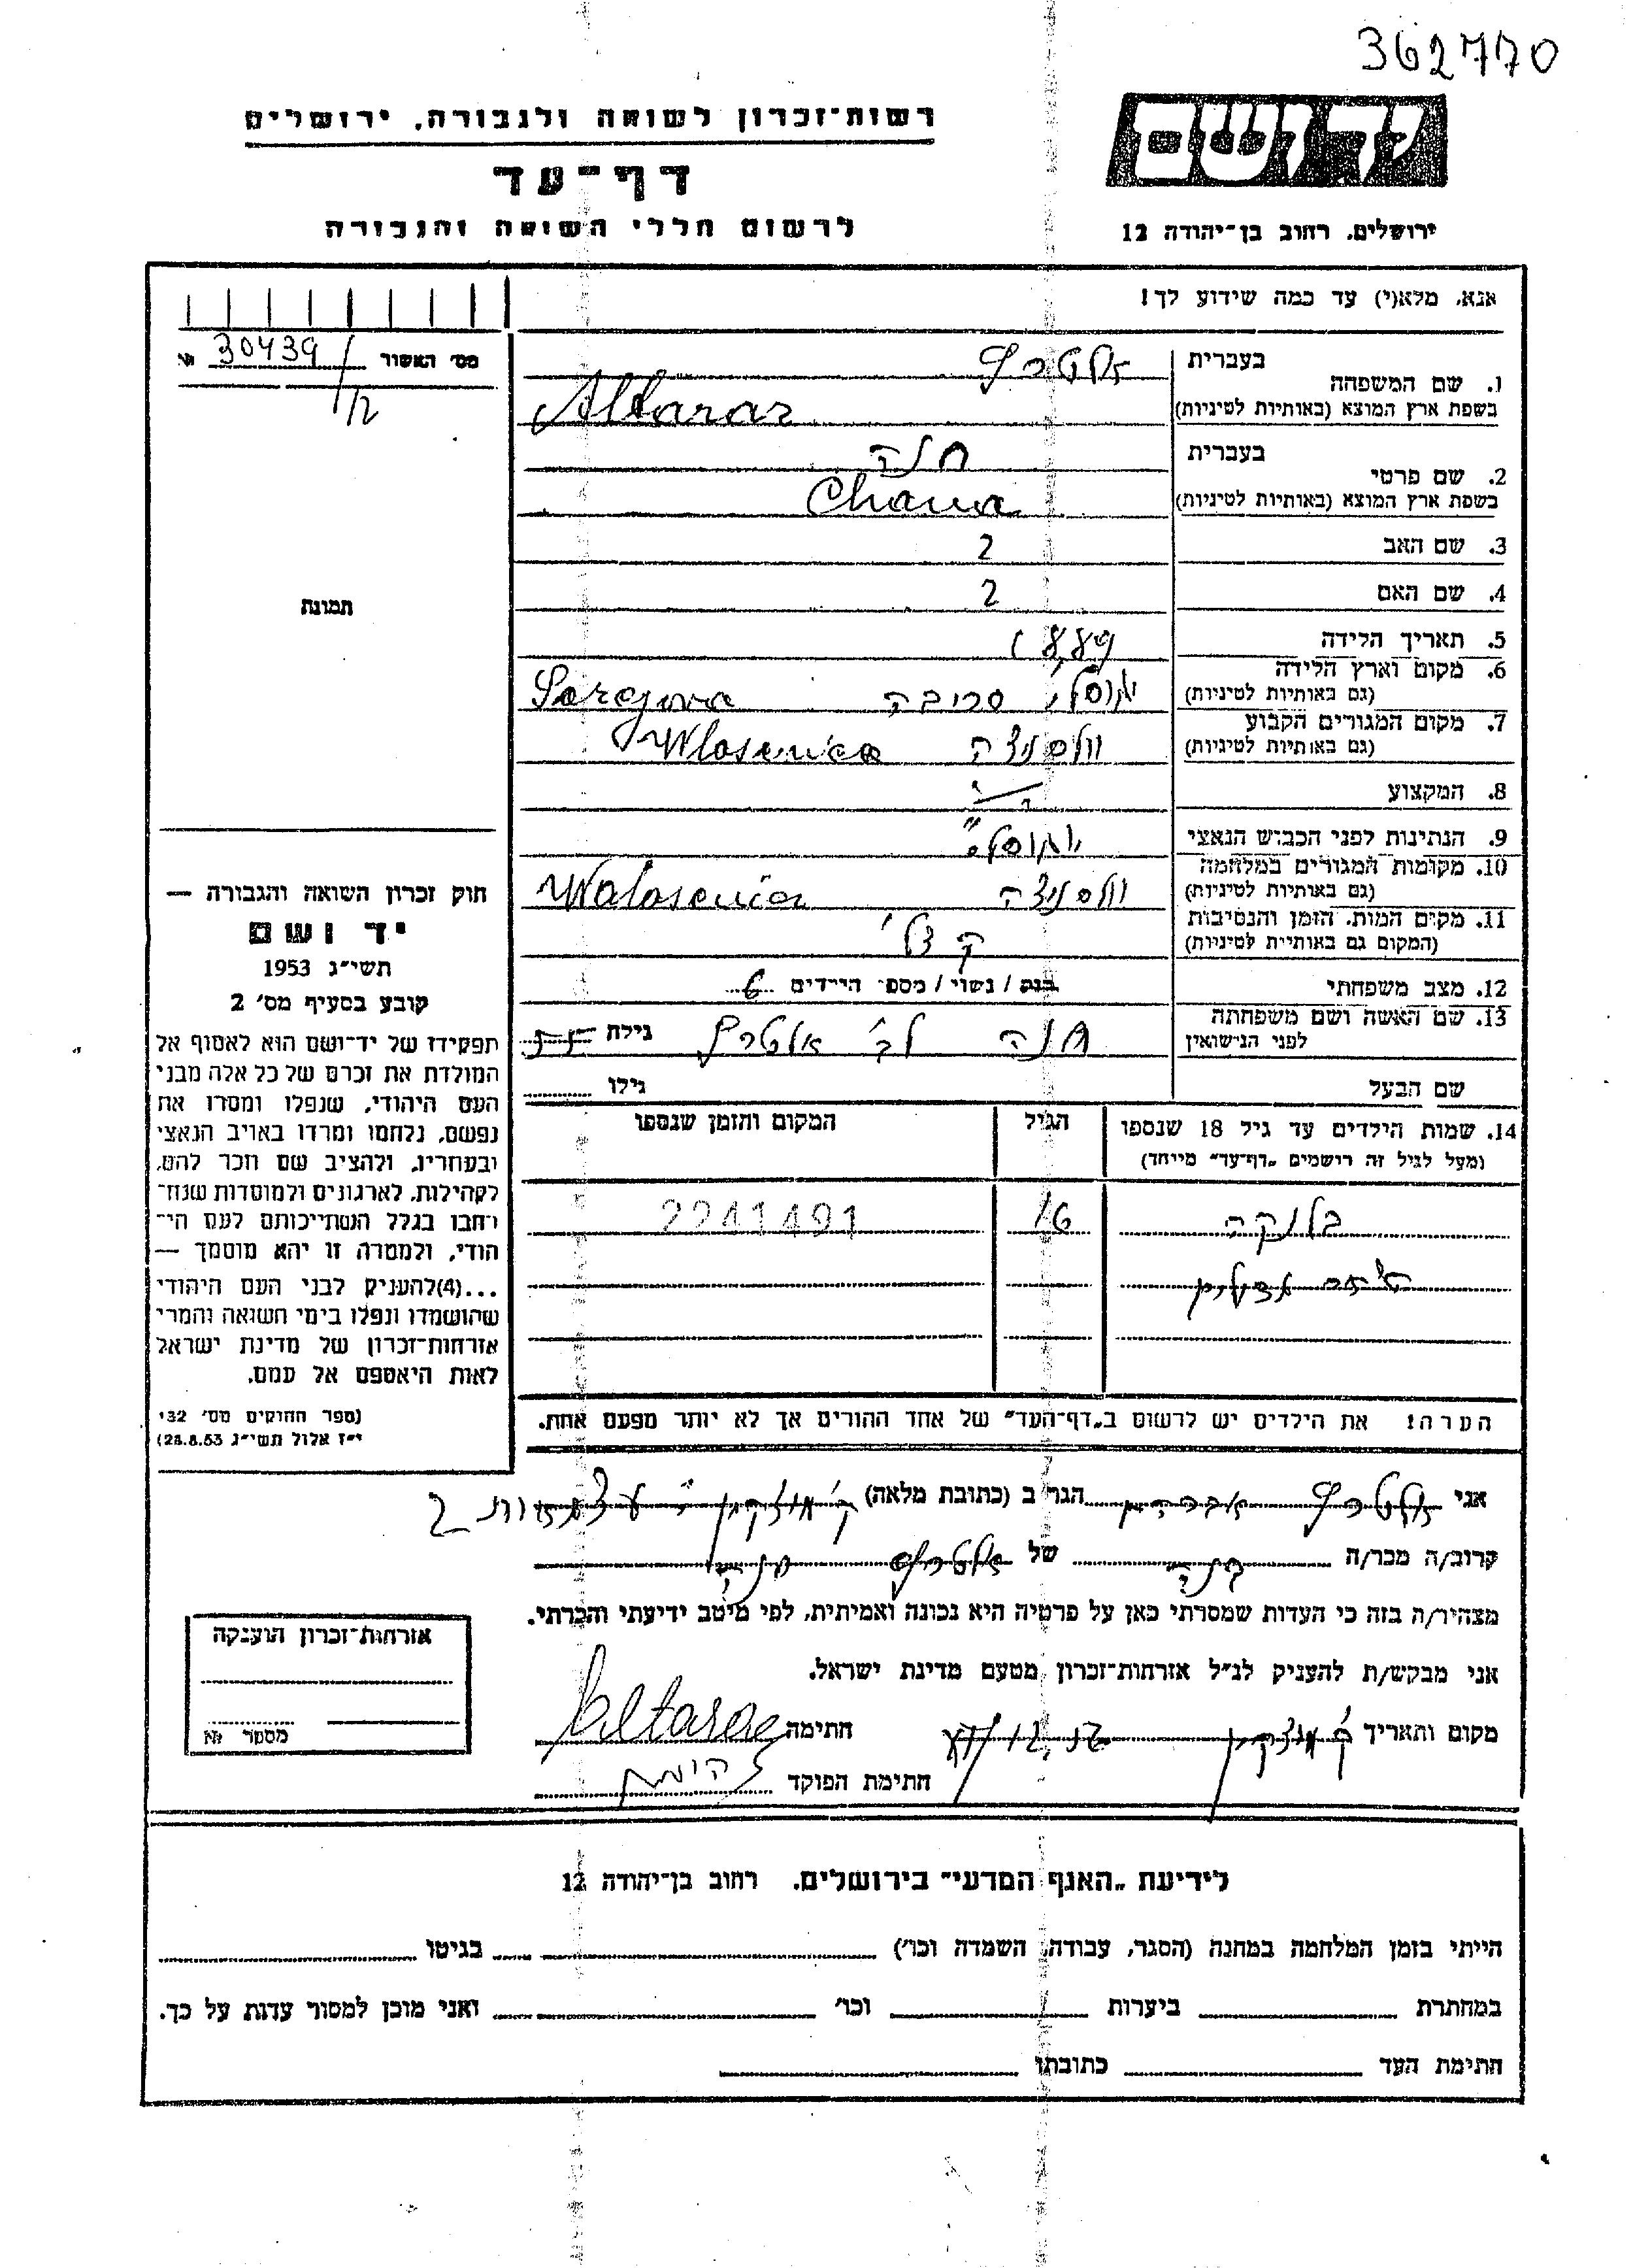 362770
רשות־זכרון לשואה ולגבורה, ירושלים
דף־עד
לרשום חללי השואה והגבורה
ידושם
ירושלים, רחוב בן־יהודה 12
אנא, מלא(י) עד כמה שידוע לך!
מס׳ האשור 30439 №
1/2
תמונה
חוק זכרון השואה והגבורה —
יד ושם
תשי״ג 1953
קובע בסעיף מס׳ 2
תפקידו של יד־ושם הוא לאסוף אל
המולדת את זכרם של כל אלה מבני
העם היהודי, שנפלו ומסרו את
נפשם, נלחמו ומרדו באויב הנאצי
ובעוזריו, ולהציב שם וזכר להם,
לקהילות, לארגונים ולמוסדות שנח־
רחבו בגלל השתייכותם לעם הי־
הודי, ולמטרה זו יהא מוסמך —
...(4)להעניק לבני העם היהודי
שהושמדו ונפלו בימי השואה והמרי
אזרחות־זכרון של מדינת ישראל
לאות היאספם אל עמם.
(ספר החוקים מס׳ 132
י״ז אלול תשי״ג 28.8.53)
1. שם המשפחה
בעברית אלטרץ
בשפת ארץ המוצא (באותיות לטיניות) Altaraz
2. שם פרטי
בעברית חנה
בשפת ארץ המוצא (באותיות לטיניות) Chana
3. שם האב 2
4. שם האם 2
5. תאריך הלידה 1889
6. מקום וארץ הלידה
(גם באותיות לטיניות)
7. מקום המגורים הקבוע
(גם באותיות לטיניות) ולסניצה Wlasenica
8. המקצוע
9. הנתינות לפני הכבוש הנאצי
10. מקומות המגורים במלחמה
(גם באותיות לטיניות) ולסניצה Walasenica
11. מקום המות, הזמן והנסיבות
(המקום גם באותיות לטיניות)
12. מצב משפחתי רווק / נשוי / מספר הילדים 6
13. שם האשה ושם משפחתה
לפני הנישואין חנה אלטרץ גילה 55
שם הבעל גילו
14. שמות הילדים עד גיל 18 שנספו הגיל המקום והזמן שנספו
(מעל לגיל זה רושמים „דף־עד״ מיוחד)
בלנקה 16 2241491
הערה: את הילדים יש לרשום ב„דף־העד״ של אחד ההורים אך לא יותר מפעם אחת.
אני אלטרץ אברהם הגר ב (כתובת מלאה) ק׳ מוצקין
קרוב/ה מכר/ה של אלטרץ חנה
מצהיר/ה בזה כי העדות שמסרתי כאן על פרטיה היא נכונה ואמיתית, לפי מיטב ידיעתי והכרתי.
אני מבקש/ת להעניק לנ״ל אזרחות־זכרון מטעם מדינת ישראל.
מקום ותאריך ק׳ מוצקין חתימה Altarac
חתימת הפוקד
אזרחות־זכרון הוענקה
מספר №
לידיעת „האגף המדעי״ בירושלים, רחוב בן־יהודה 12
הייתי בזמן המלחמה במחנה (הסגר, עבודה, השמדה וכו׳) בגיטו
במחתרת ביערות וכו׳ ואני מוכן למסור עדות על כך.
חתימת העד כתובתו